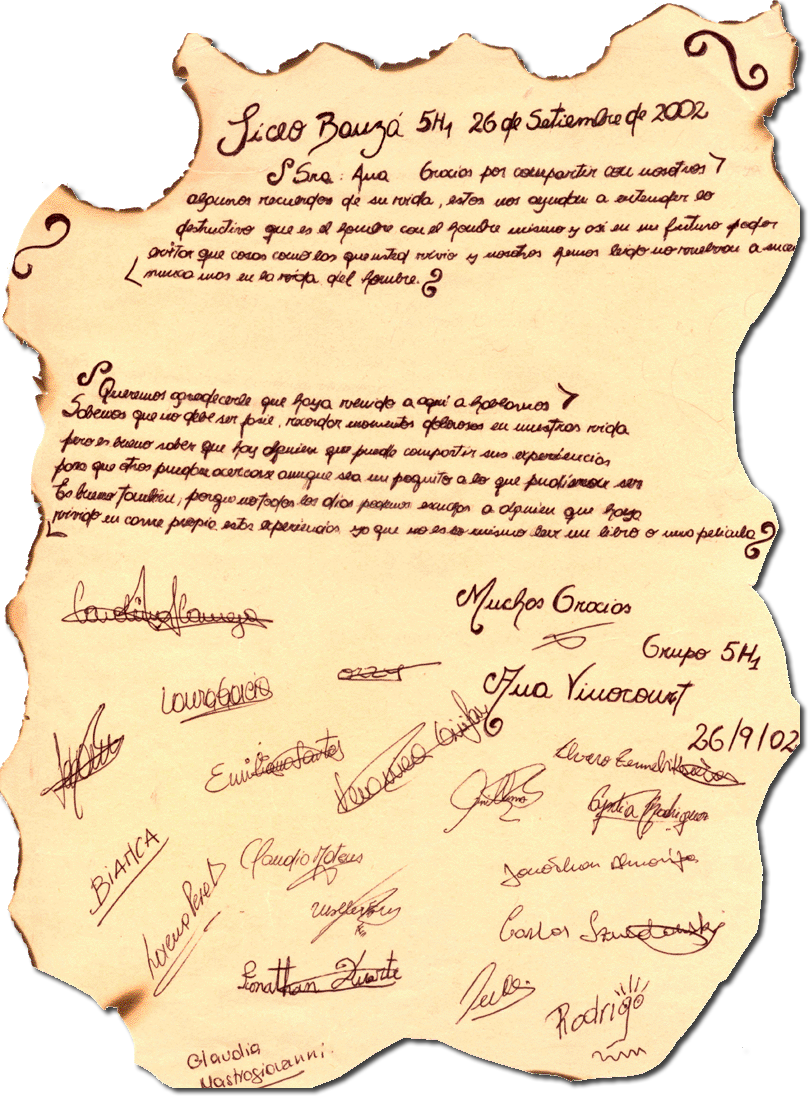 Liceo Bauzá 5H1 26 de Setiembre de 2002
Sra: Ana Gracias por compartir con nosotros
algunos recuerdos de su vida, estos nos ayudan a entender lo
destructivo que es el hombre con el hombre mismo y asi en un futuro poder
evitar que cosas como las que usted vivio y nosotros hemos leido no vuelvan a suce
nunca mas en la vida del hombre.
Queremos agradecerle que haya venido a aquí a hablarnos
Sabemos que no debe ser facil, recordar momentos dolorosos en nuestras vida
pero es bueno saber que hay alguien que puede compartir sus experiencias
para que otros puedan acercarse aunque sea un poquito a lo que pudieron ser
Es bueno también, porque no todos los dias podemos escuchar a alguien que haya
vivido en carne propia estas experiencias ya que no es lo mismo leer un libro o una pelicula
Muchas Gracias
Grupo 5H1
Laura Garcia
Ana Vinocourt
26/9/02
Emiliano Santos
Veronica
Alvaro
Guillermo
Cyntia Rodriguez
BiANCA
Claudia Mateus
Jonathan Almorifa
Lorena Perel
Carlos
Jonathan Duarte
Rodrigo
Claudia
Mastrogiovanni.